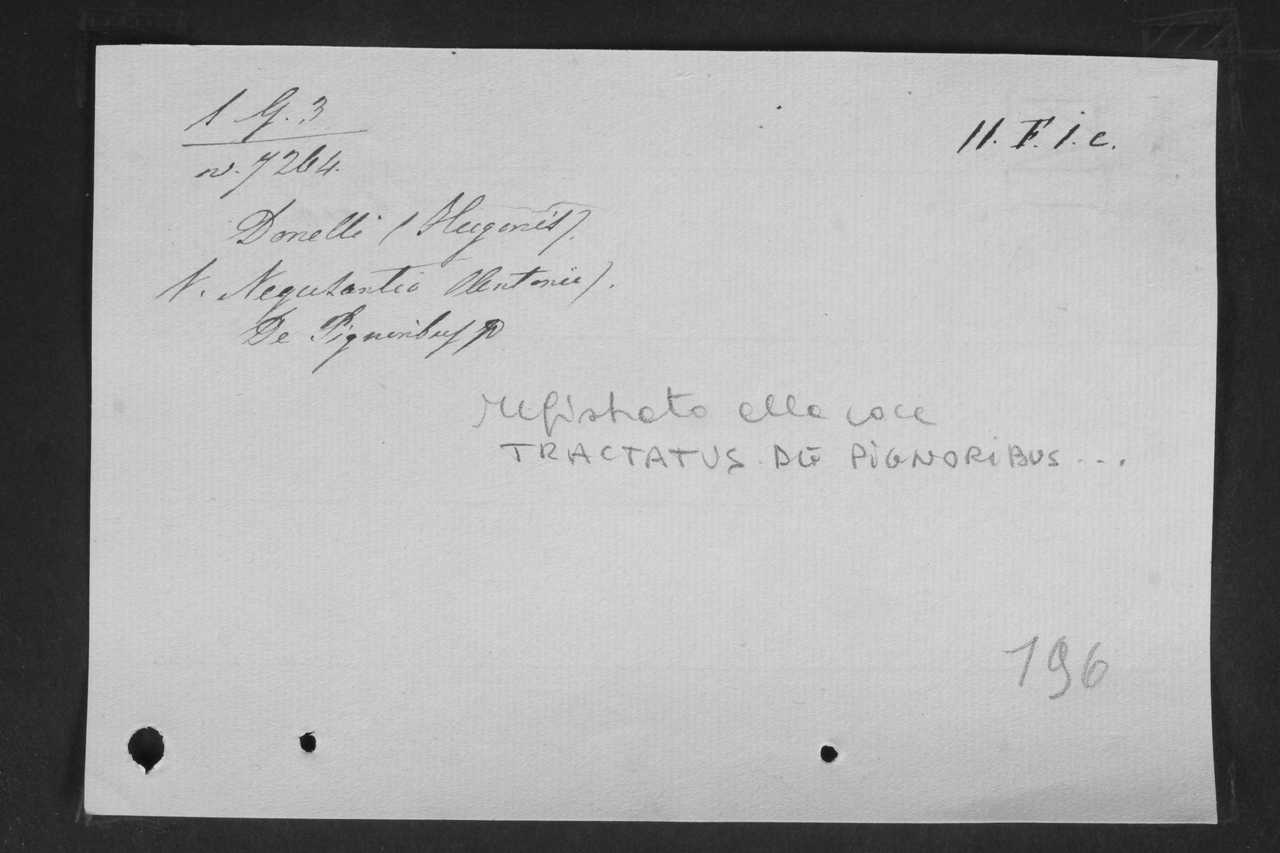 1 G. 3
11. F. 1. c.
n. 7264.
Donelli (Hugonis).
V. Negusantio Antonii).
De Pignoribus
registrato alla voce
TRACTATUS DE PIGNORIBUS...
196